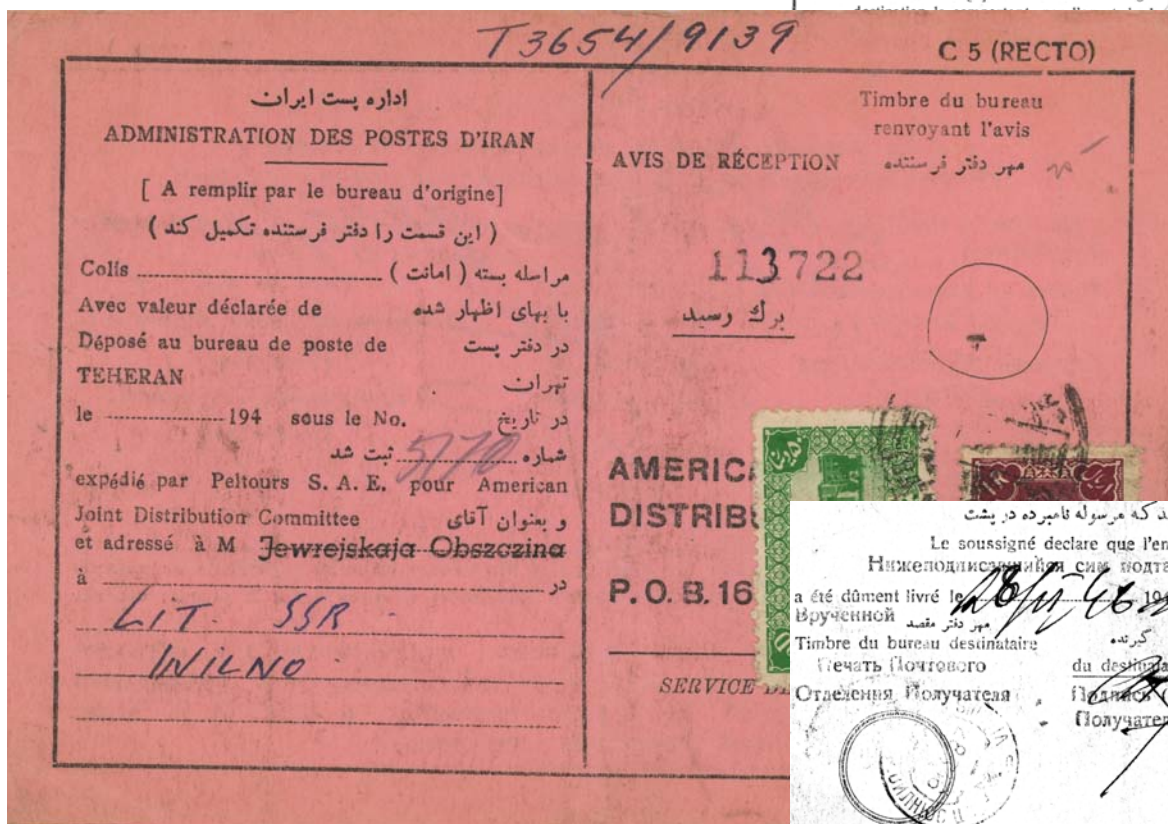 T3654/9139
C 5 (RECTO)
اداره پست ایران
ADMINISTRATION DES POSTES D'IRAN
[ A remplir par le bureau d'origine]
( این قسمت را دفتر فرستنده تکمیل کند )
Colis مراسله بسته ( امانت )
Avec valeur déclarée de با بهای اظهار شده
Déposé au bureau de poste de در دفتر پست
TEHERAN تهران
le 194 sous le No. در تاریخ
شماره 5770 ثبت شد
expédié par Peltours S. A. E. pour American
Joint Distribution Committee و بعنوان آقای
et adressé à M Jewrejskaja Obszczina
à در
LIT. SSR
WILNO
Timbre du bureau
renvoyant l'avis
AVIS DE RÉCEPTION مهر دفتر فرستنده
113722
برك رسید
AMERIC
DISTRIB
P. O. B. 16
SERVICE
که مرسوله نامبرده در پشت
Le soussigné declare que l'en
Нижеподписавшийся сим подта
a été dûment livré le 28/VI 46 194
Врученной مهر دفتر مقصد
Timbre du bureau destinataire گیرنده
Печать Почтового du destinata
Отделения Получателя Подпись
Получател